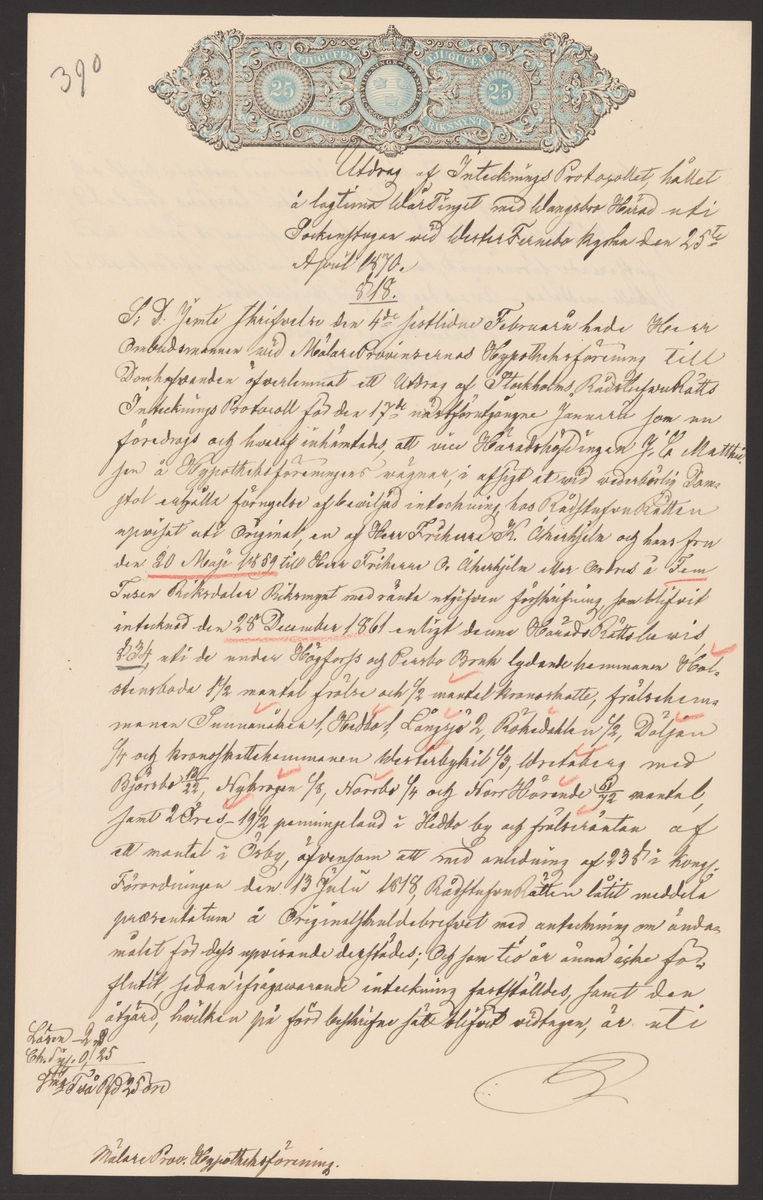 390
TJUGUFEM TJUGUFEM
25 25
ÖRE RIKSMYNT
Utdrag af Intecknings Protocollet, hållet
å lagtima WårTinget med Wangsbro Härad uti
Sockenstugan wid WesterFernebo kyrka den 25te
April 1870.
§18.
S. D. Jemte skrifvelse den 4de sistlidne Februarii hade Herr
Ombudsmannen wid MälareProvinsernas Hypotheksförening till
Domhafvanden öfverlemnat ett Utdrag af Stockholms RådstufvuRätts
Intecknings Protocoll för den 17de nästförutgångne Januarii som nu
föredrogs och hvaraf inhämtades, att vice Häradshöfdingen J. E. Matthie-
sen å Hypotheksföreningens wägnar, i afsigt at wid wederbörlig Dom-
stol erhålla förnyelse af beviljad inteckning, hos RådstufvuRätten
uppvisat uti Original, en af Herr Friherre K. Åkerhjelm och hans fru
den 20 Maji 1859 till Herr Friherre O. Åkerhjelm eller Ordres å Fem
Tusen Riksdaler Riksmynt med ränta utgifven förskrifning som blifvit
intecknad den 28 December 1861 enligt denne HäradsRätts bewis,
§34, uti de under Högfors och Persbo Bruk lydande hemmanen Hol-
stensboda 1 1/2 mantal frälse och 1/2 mantal kronoskatte, frälsehem-
manen Sunnanåker 1, Hedbo 1, Långsjö 2, Rökedahlen 1/2, Döljan
1/4 och kronoskattehemmanen Westerbykil 1/3, Wretaberg med
Björsbo 13/22, Nykrogen 1/8, Norrbo 1/4 och Norr Hörende 51/72 mantal,
samt 2 Öres 19 1/2 penningeland i Hedbo by och frälseräntan af
ett mantal i Ösby, äfvensom att med anledning af 23§ i Kongl.
Förordningen den 13 Julii 1818, RådstufvuRätten låtit meddela
præsentatum å Originalskuldebrefvet med anteckning om ända-
målet för dess uppvisande derstädes; Och som tio år ännu icke för-
flutit, sedan ifrågavarande inteckning fastställdes, samt den
åtgärd, hwilken på förd beskrifne sätt blifvit vidtagen, är uti
Lösen 2,
Ch. Sig. 0, 25
Två Rd 25 öre
Mälare Prov. Hypotheksförening.